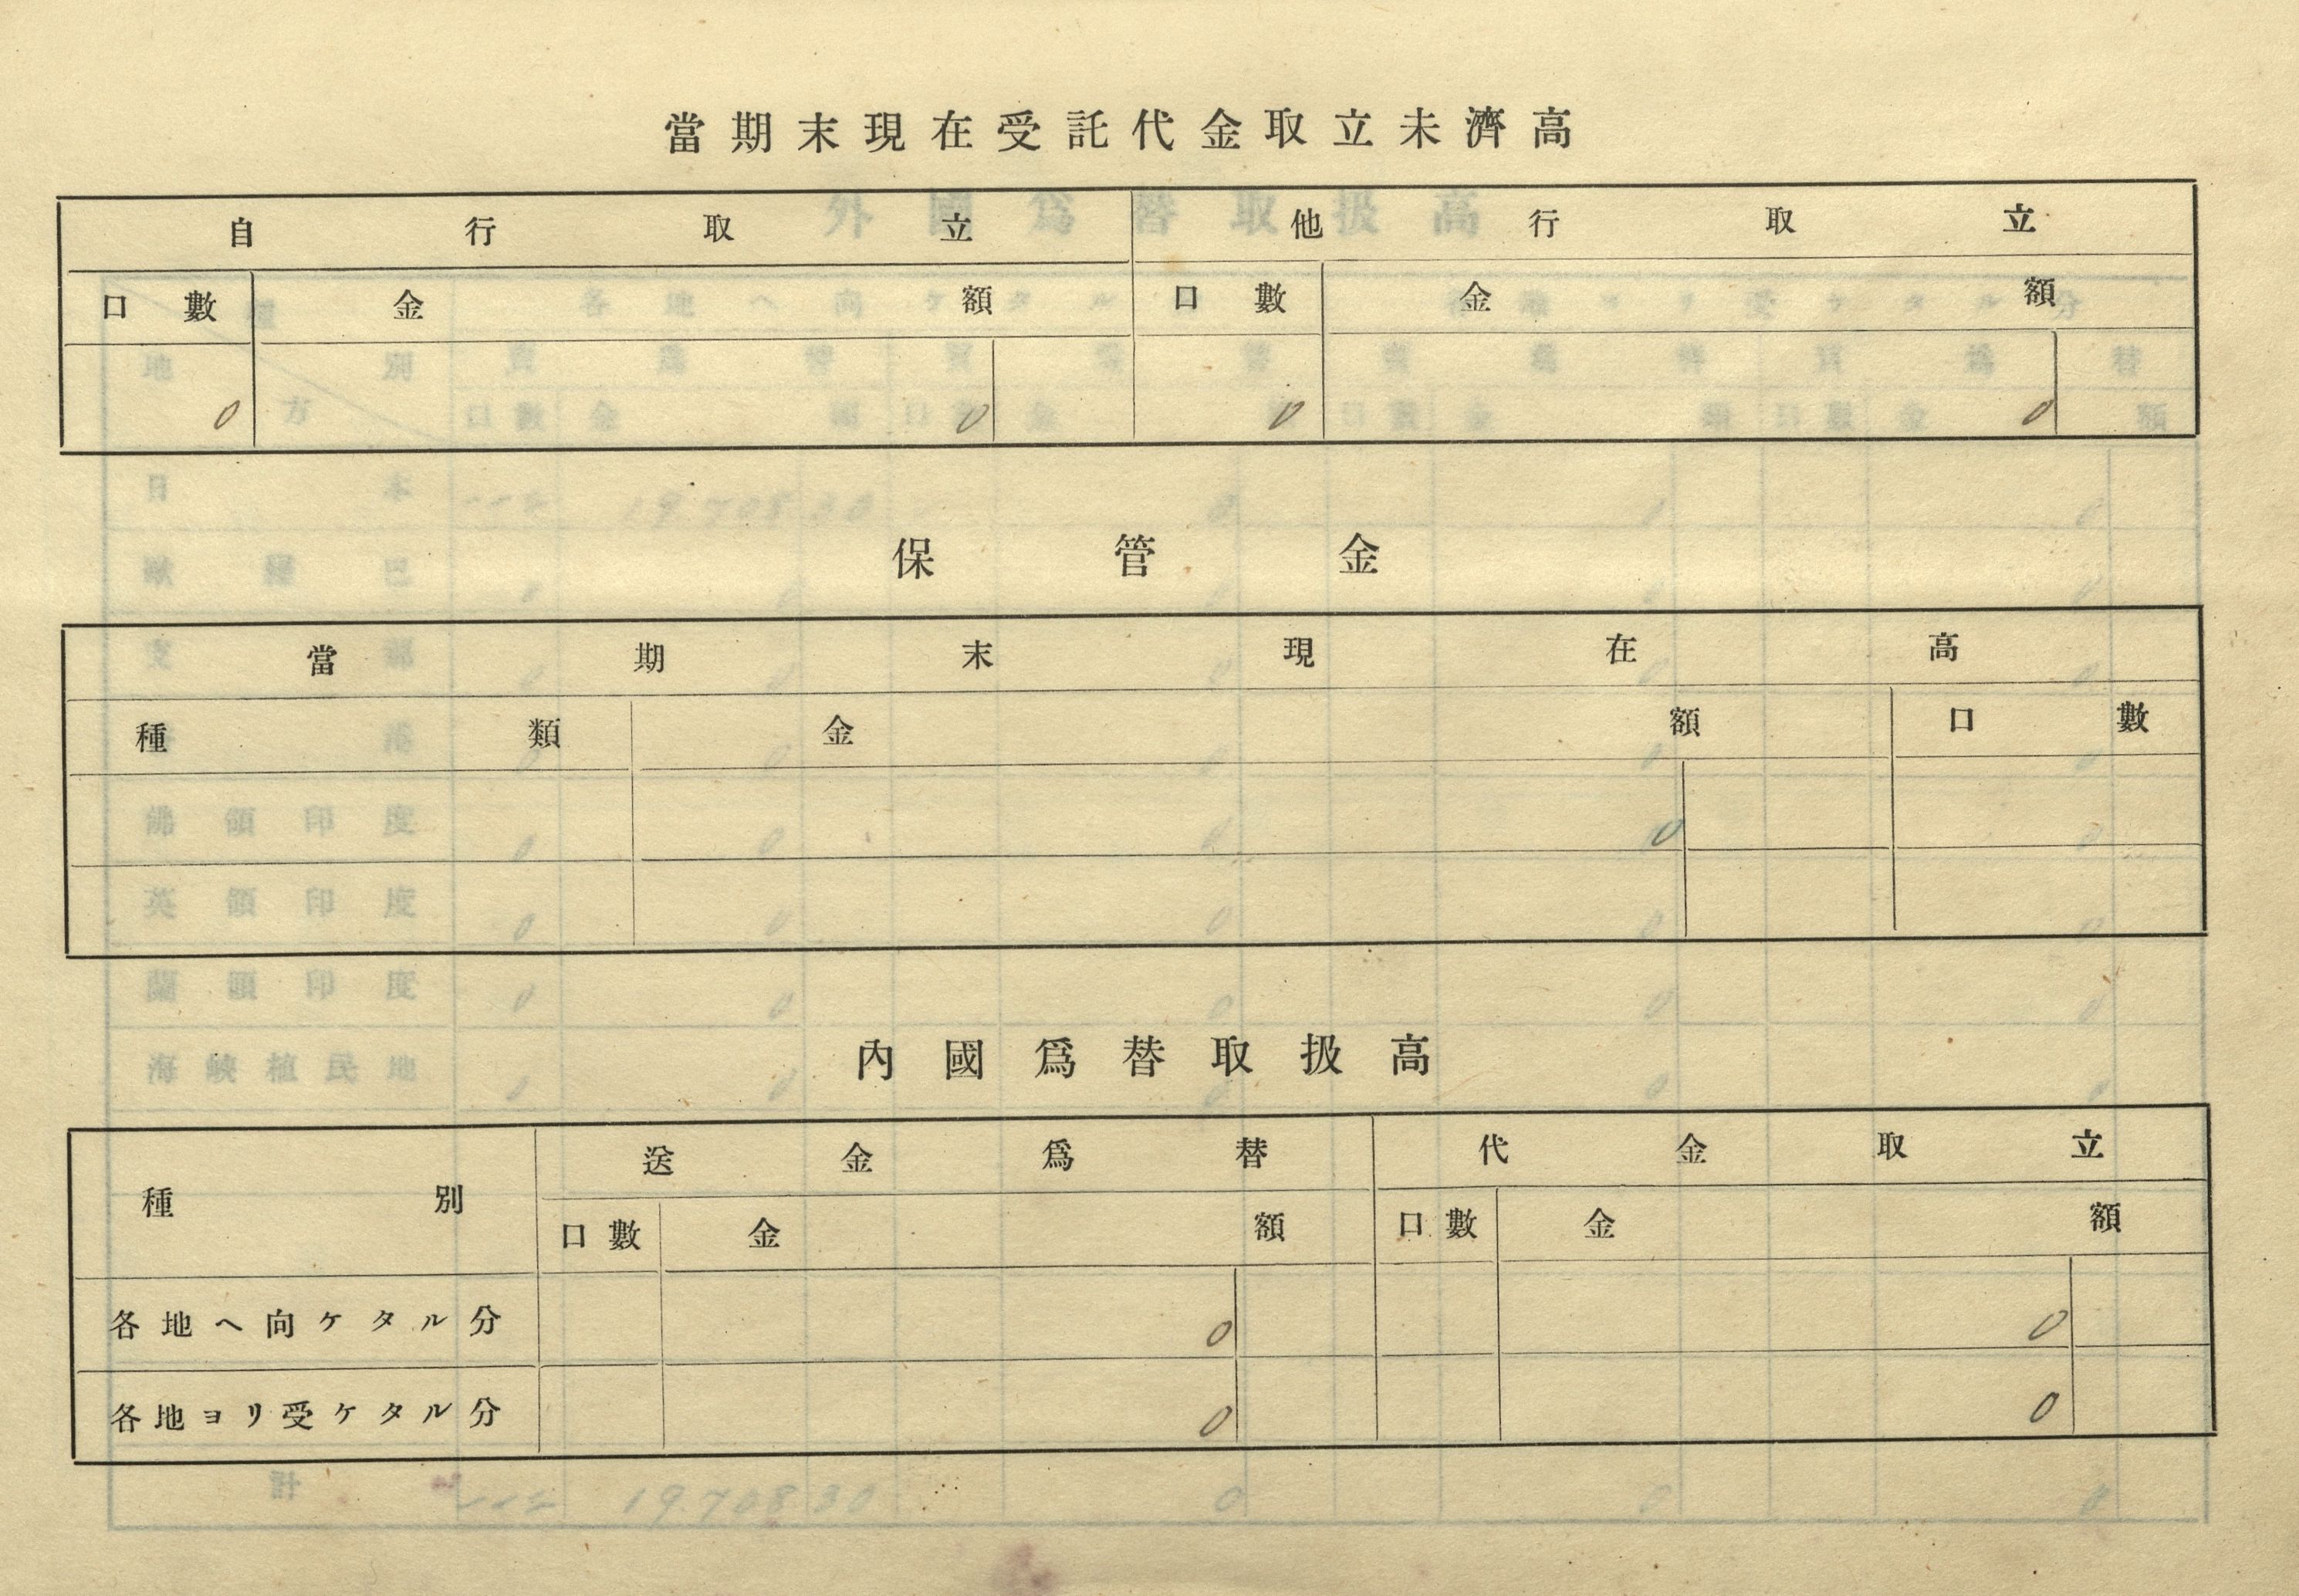 當期末現在受託代金取立未濟高
自行取立 他行取立
口數 金額 口數 金額
0 0 0 0
保管金
當期末現在高
種類 金額 口數
0
內國爲替取扱高
種別 送金爲替 代金取立
口數 金額 口數 金額
各地ヘ向ケタル分 0 0
各地ヨリ受ケタル分 0 0